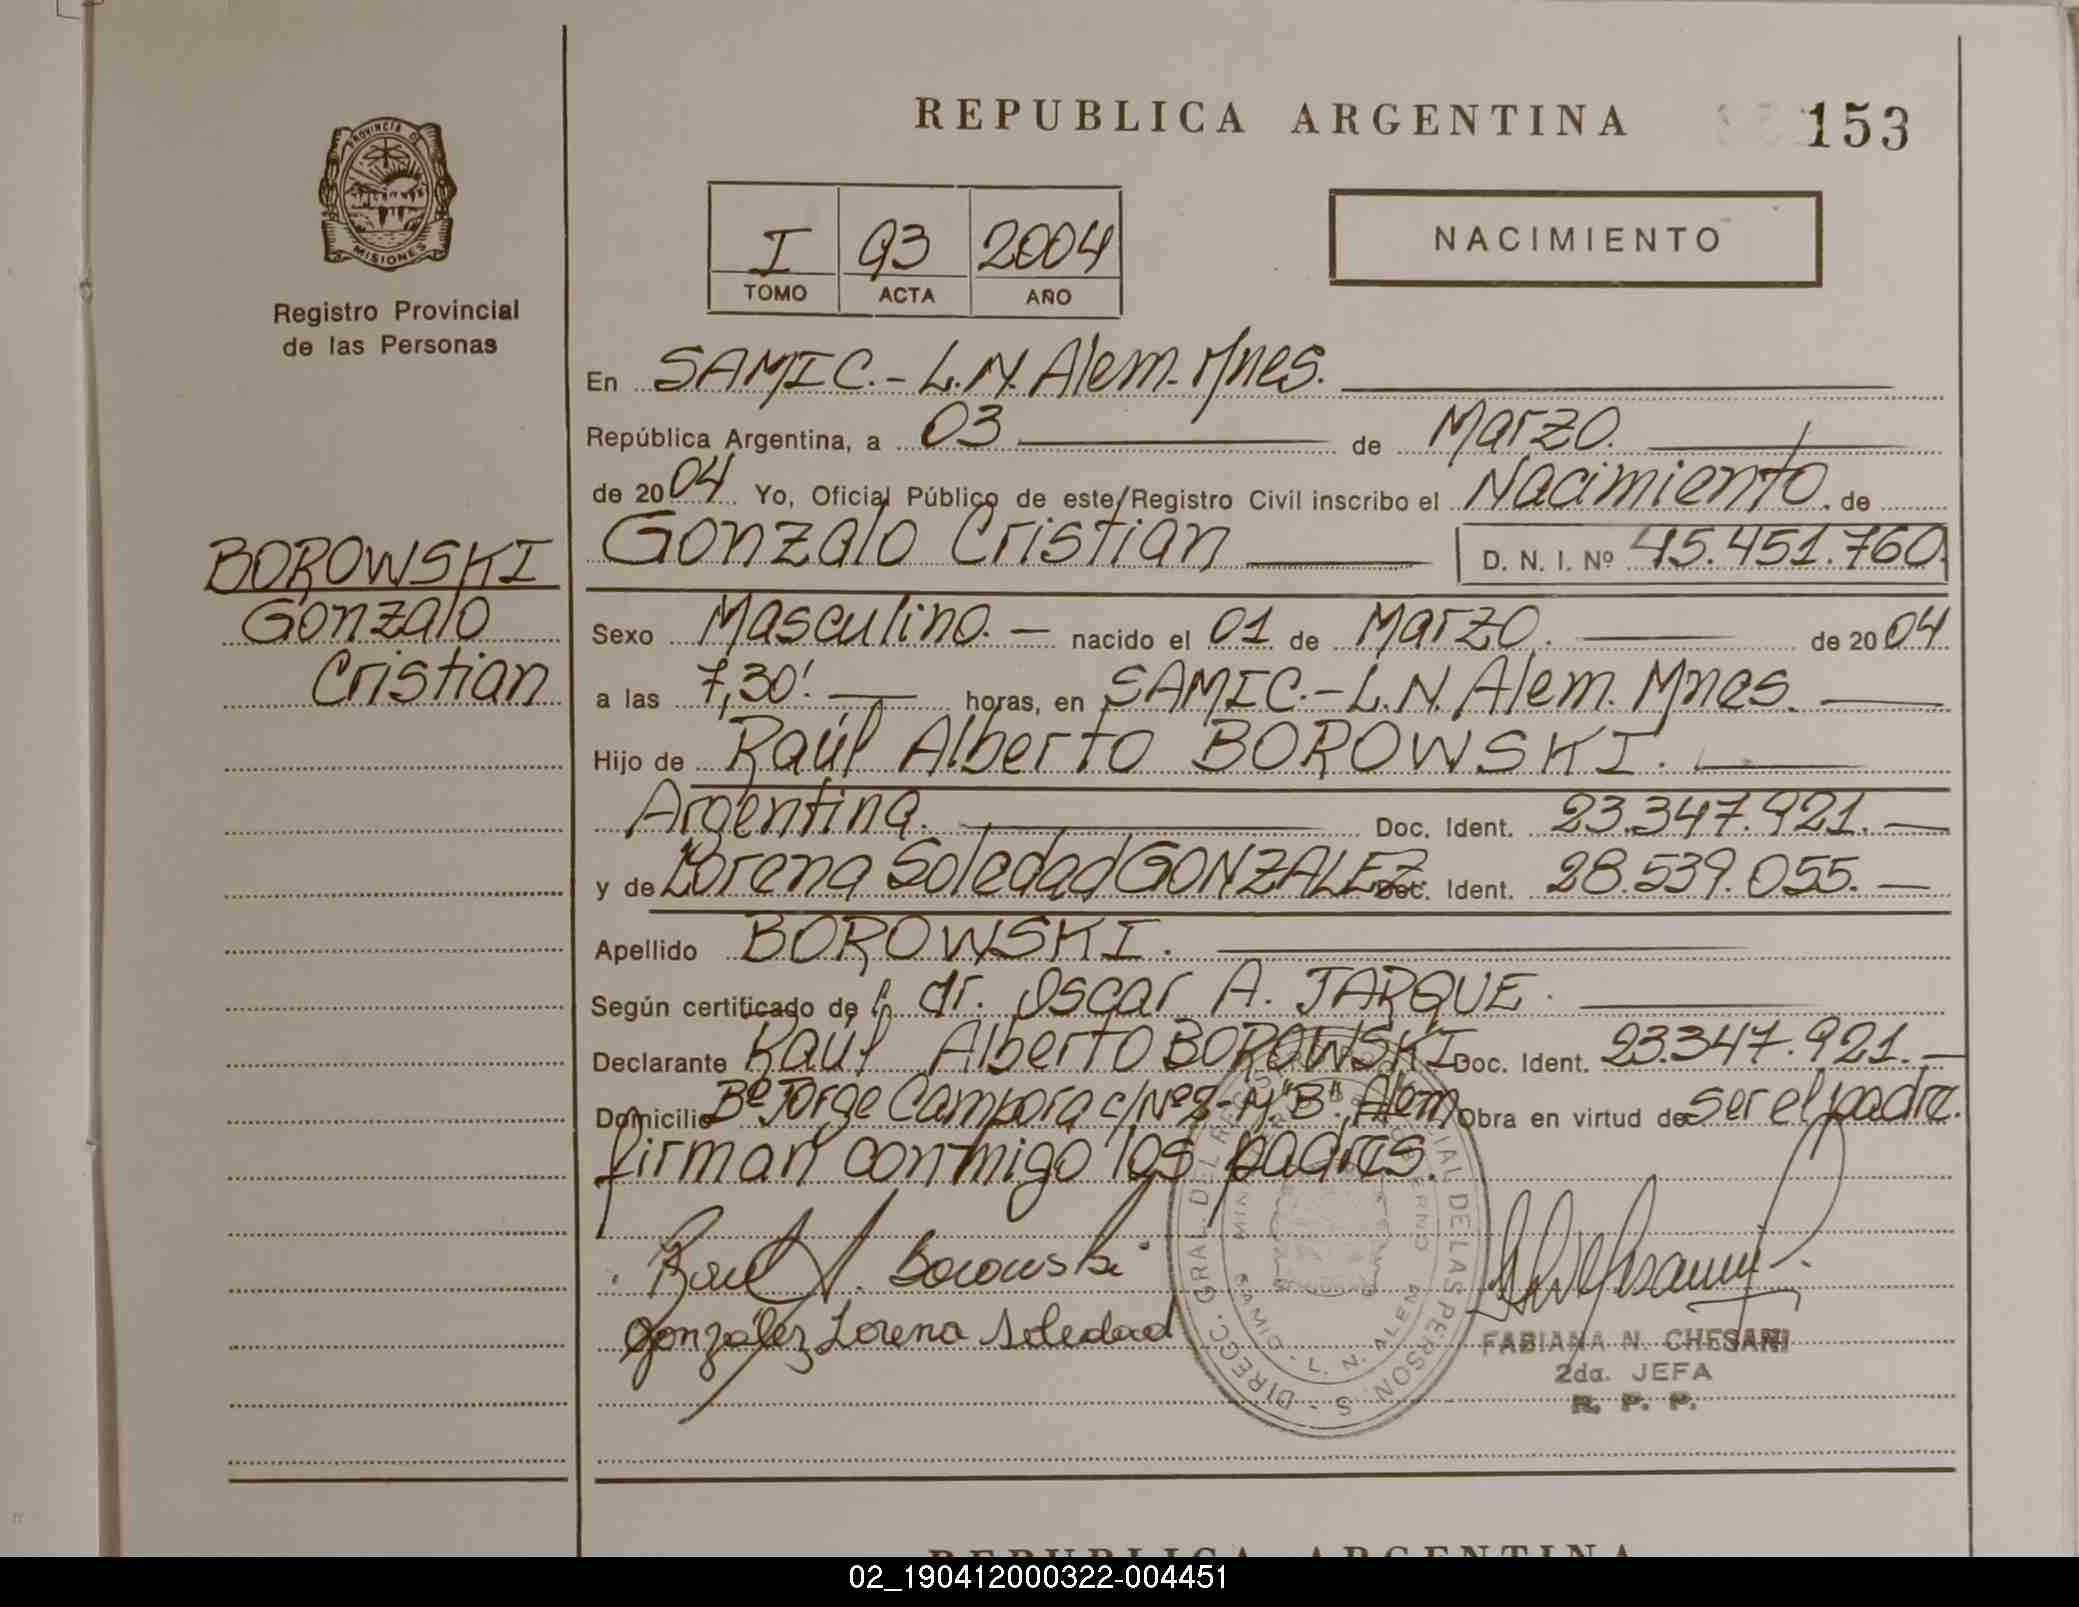 REPUBLICA ARGENTINA
153
PROVINCIA DE
MISIONES
Registro Provincial
de las Personas
I 93 2004
TOMO ACTA AÑO
NACIMIENTO
En SAMIC.- L.N. Alem. Mnes.
República Argentina, a 03 de Marzo.
de 2004 Yo, Oficial Público de este Registro Civil inscribo el Nacimiento. de
Gonzalo Cristian D. N. I. Nº 45.451.760.
BOROWSKI
Gonzalo
Cristian
Sexo Masculino. nacido el 01 de Marzo. de 2004
a las 7,30'. horas, en SAMIC.- L.N. Alem. Mnes.
Hijo de Raúl Alberto BOROWSKI.
Argentina. Doc. Ident. 23.347.921.
y de Lorena Soledad GONZALEZ Doc. Ident. 28.539.055.
Apellido BOROWSKI.
Según certificado de dr. Oscar A. JARQUE.
Declarante Raúl Alberto BOROWSKI Doc. Ident. 23.347.921.
Domicilio Bº Jorge Campora c/Nº8-M"B", Alem Obra en virtud de ser el padre.
firman conmigo los padres.
Raul A. Borowski
Gonzalez Lorena Soledad
FABIANA N. CHESANI
2da. JEFA
R. P. P.
REPUBLICA ARGENTINA
02_190412000322-004451